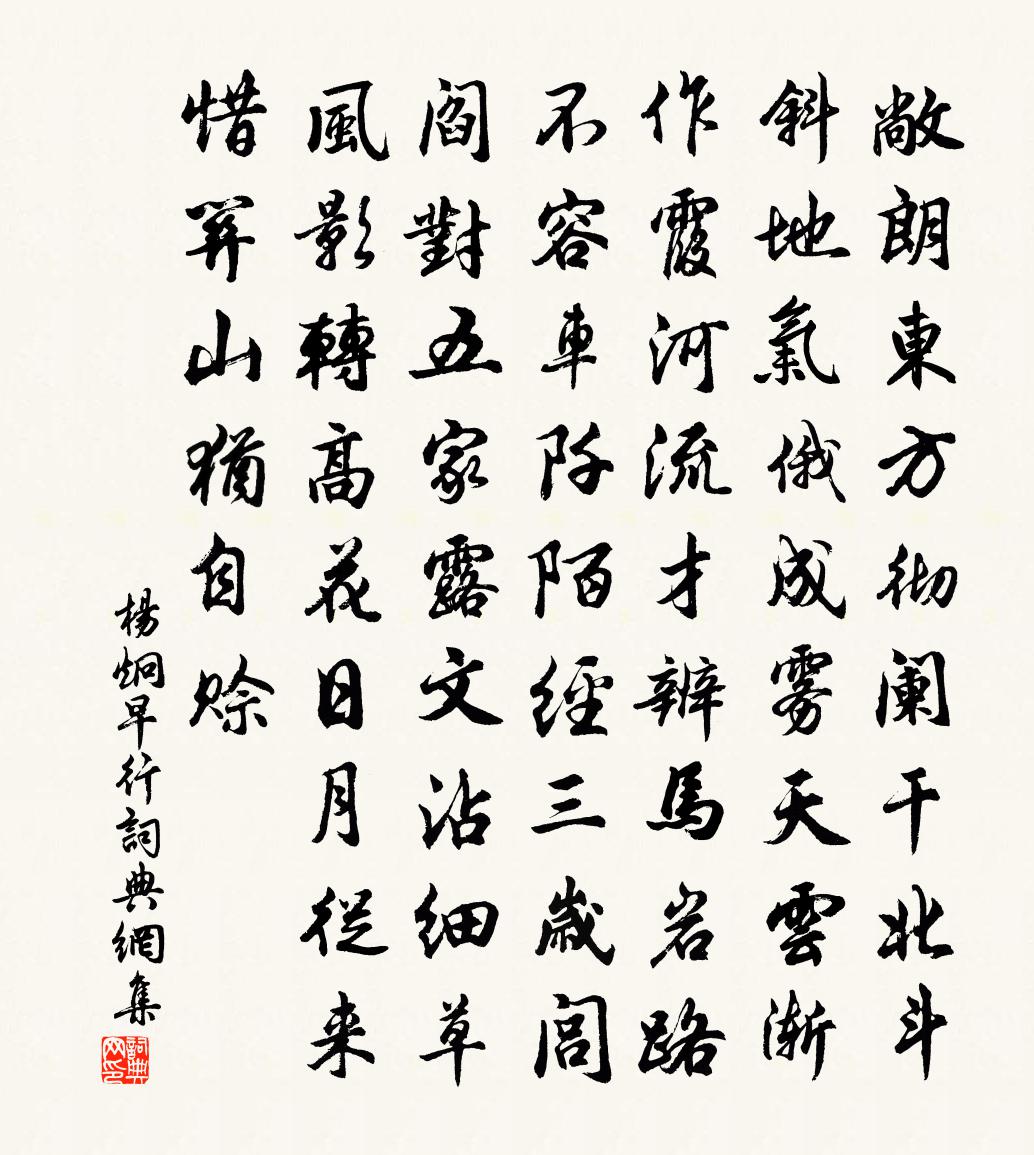 敞朗東方彻阑干北斗
斜地氣俄成雾天雲渐
作霞河流才辨馬岩路
不容車阡陌經三歲闾
阎對五家露文沾細草
風影轉高花日月從来
惜關山猶自赊
楊炯早行詞典網集
詞典网印